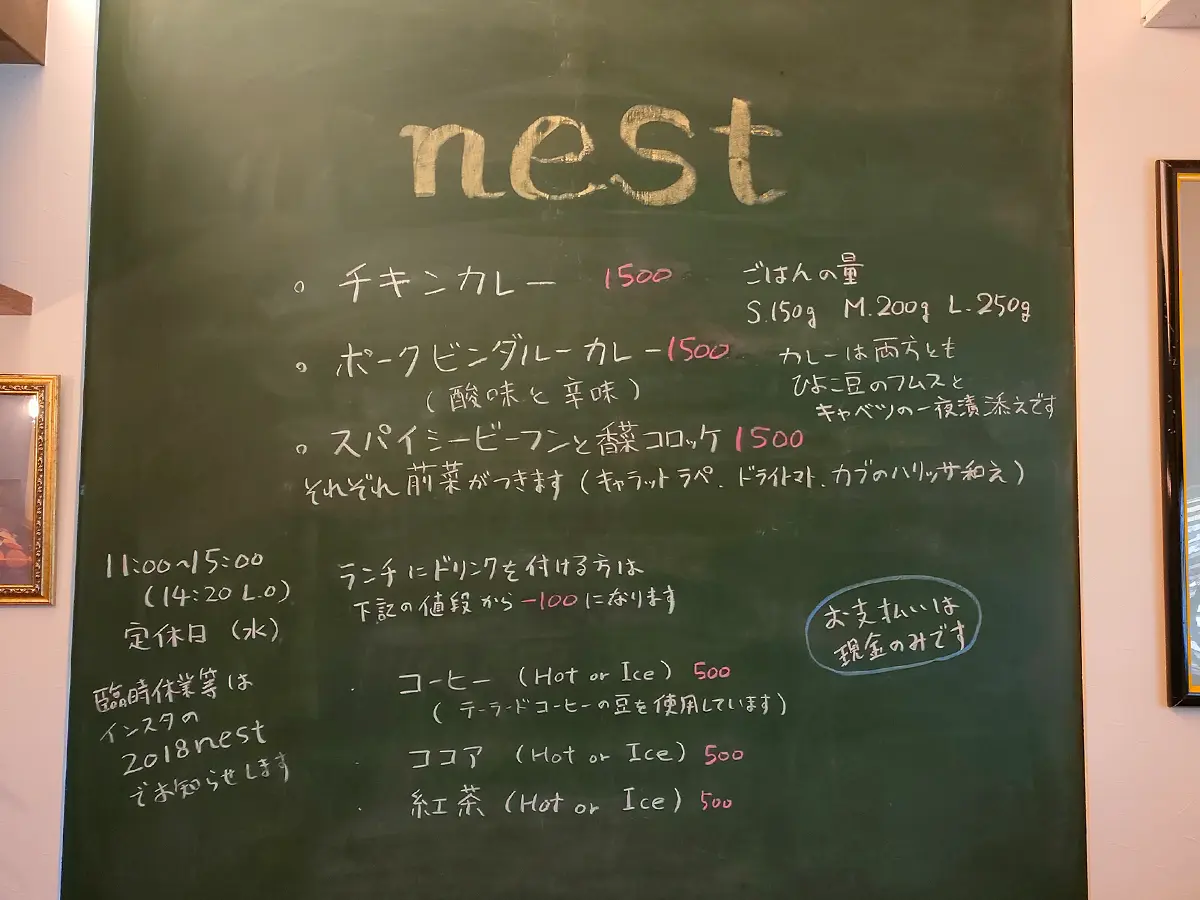 nest
。チキンカレー 1500
ごはんの量
S.150g M.200g L.250g
。ポークビンダルーカレー 1500
(酸味と辛味)
カレーは両方とも
ひよこ豆のフムスと
キャベツの一夜漬添えです
。スパイシービーフンと香菜コロッケ 1500
それぞれ前菜がつきます(キャラットラペ.ドライトマト.カブのハリッサ和え)
11:00~15:00
(14:20 L.O)
定休日(水)
臨時休業等は
インスタの
2018nest
でお知らせします
ランチにドリンクを付ける方は
下記の値段から-100になります
お支払いは
現金のみです
・コーヒー (Hot or Ice) 500
(テーラードコーヒーの豆を使用しています)
・ココア (Hot or Ice) 500
・紅茶 (Hot or Ice) 500